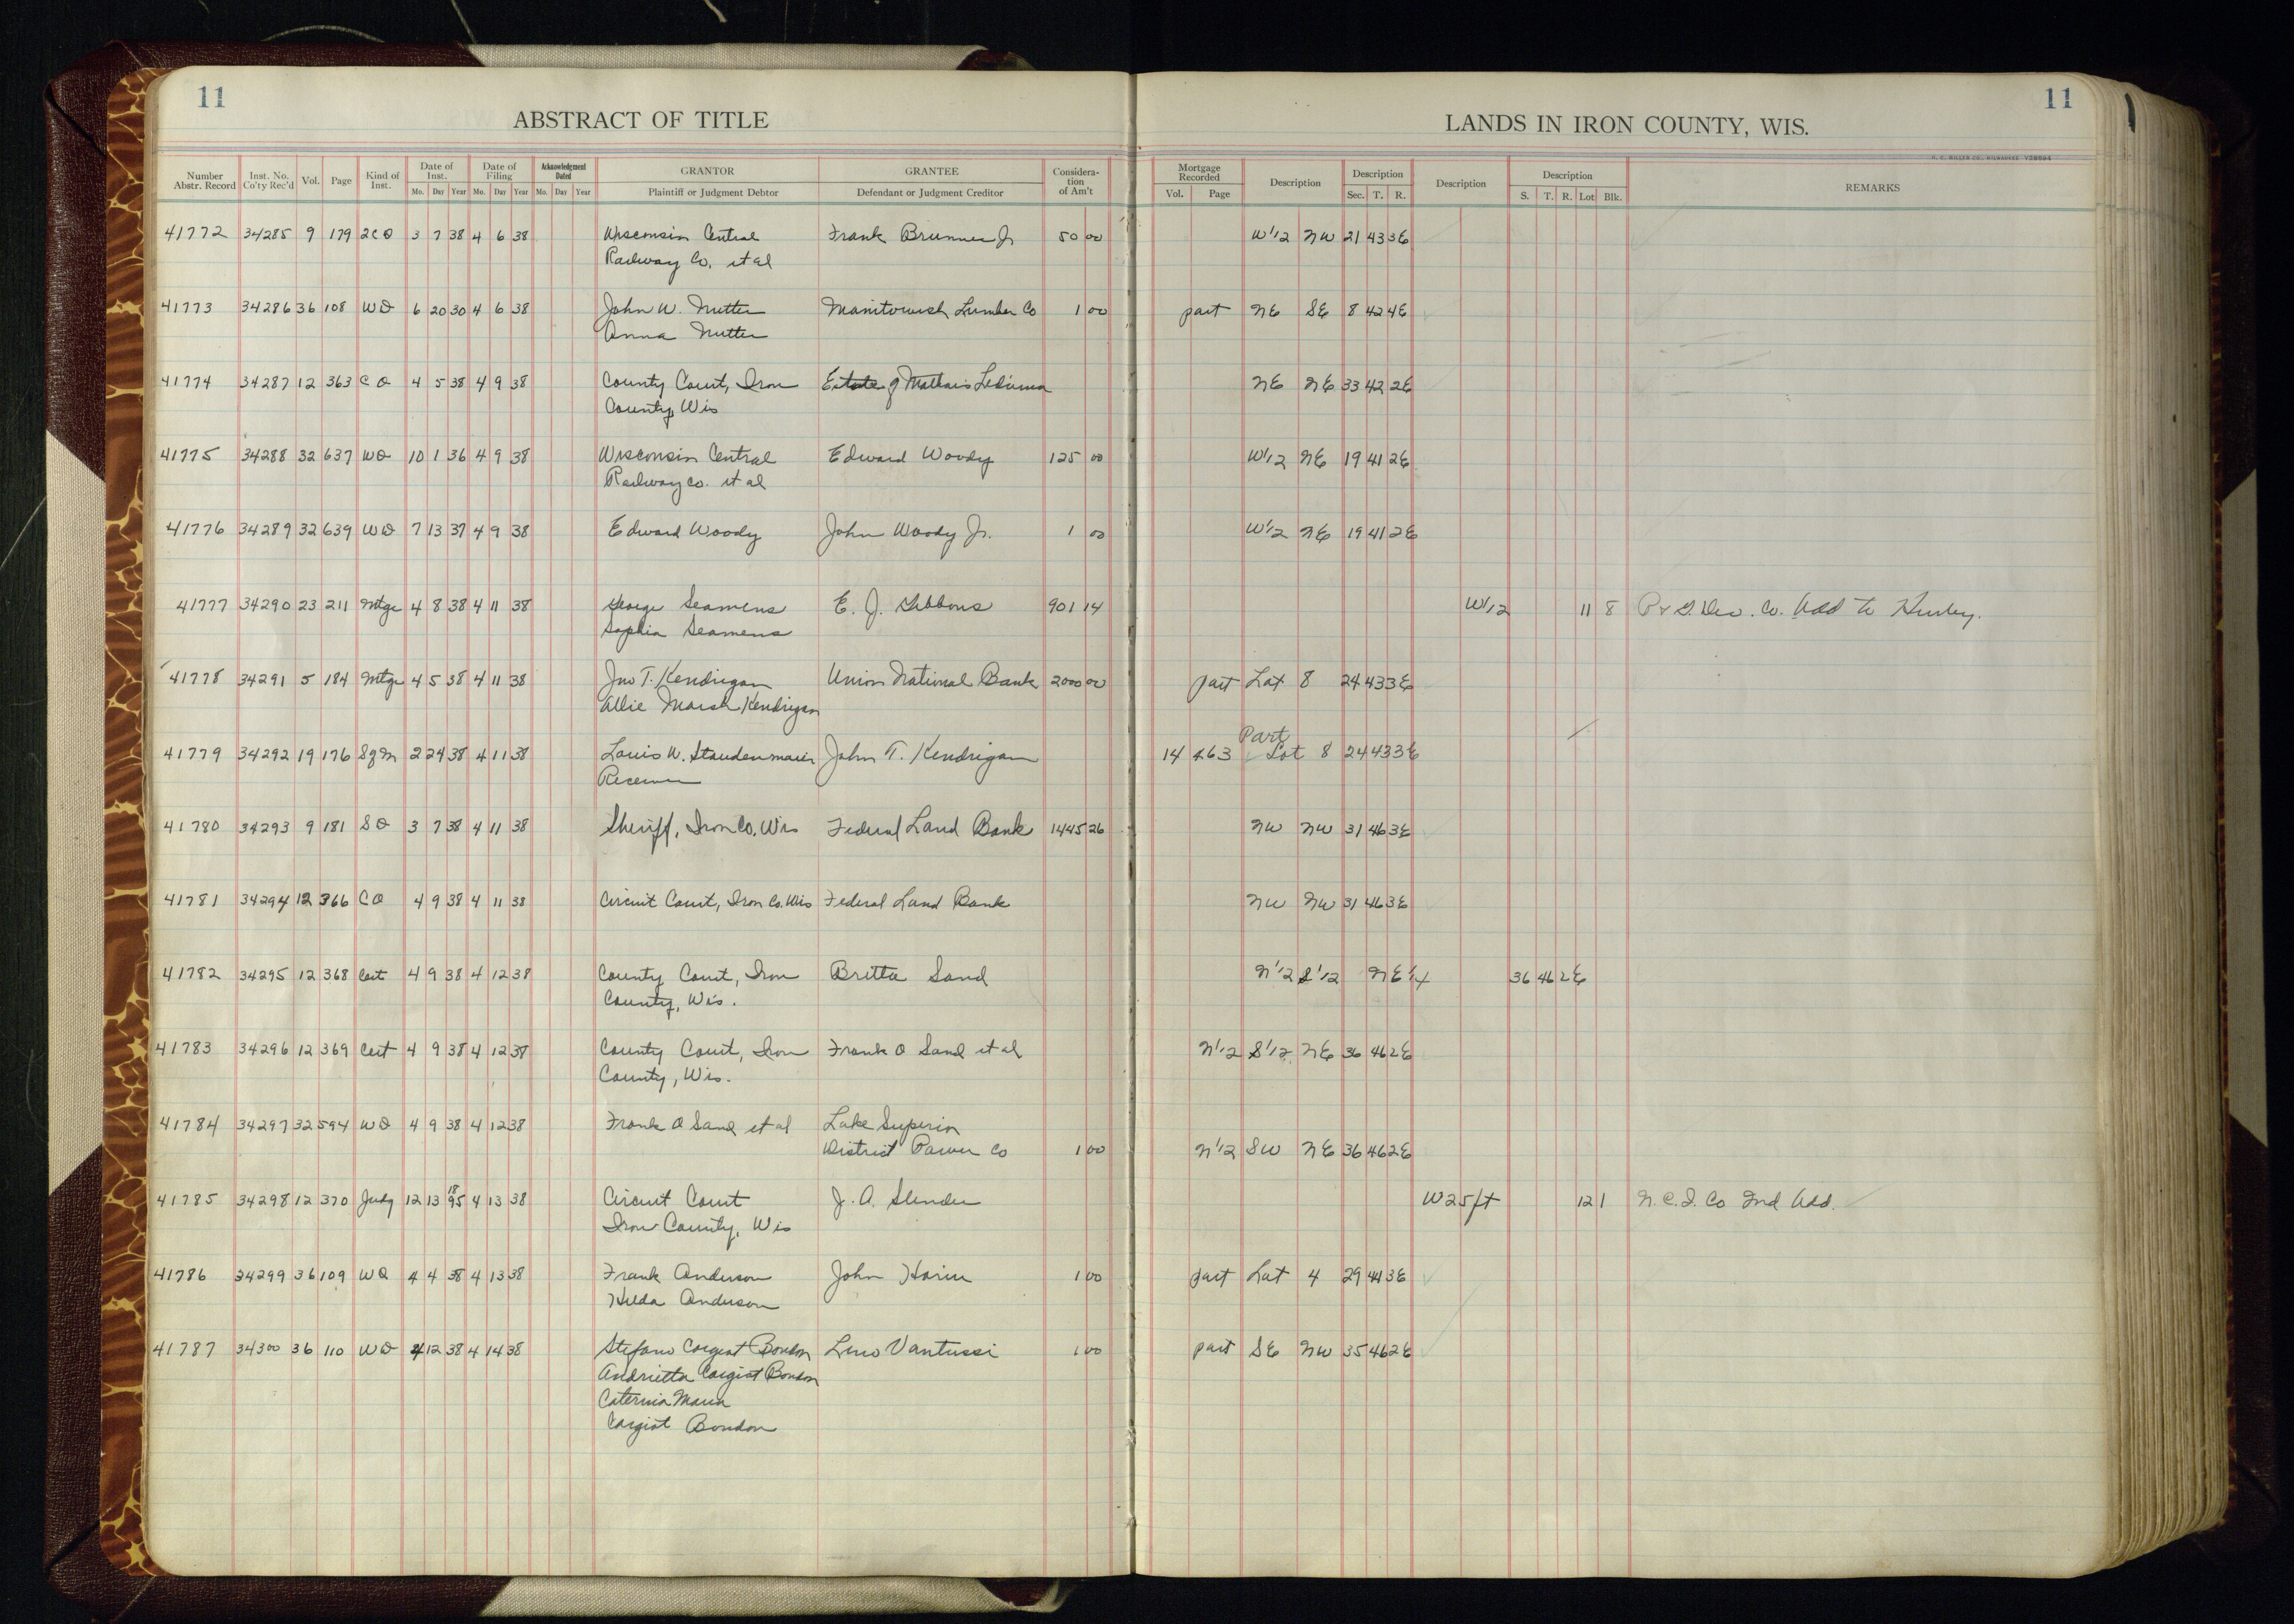 11
ABSTRACT OF TITLE
LANDS IN IRON COUNTY, WIS.
11
H. C. MILLER CO., MILWAUKEE
Number Abstr. Record Inst. No. Co'ty Rec'd Vol. Page Kind of Inst. Date of Inst. Mo. Day Year Date of Filing Mo. Day Year Acknowledgment Dated Mo. Day Year GRANTOR Plaintiff or Judgment Debtor GRANTEE Defendant or Judgment Creditor Consideration of Am't Mortgage Recorded Vol. Page Description Description Sec. T. R. Description Description S. T. R. Lot Blk. REMARKS
41772 34285 9 179 2CD 3 7 38 4 6 38 Wisconsin Central Frank Brunner Jr 50 00 W1/2 NW 21 43 3E
Railway Co. et al
41773 34286 36 108 WD 6 20 30 4 6 38 John W. Nutter Manitowish Lumber Co 1 00 part NE SE 8 42 4E
Anna Nutter
41774 34287 12 363 CO 4 5 38 4 9 38 County Court, Iron Estate of Mathais NE NE 33 42 2E
County, Wis
41775 34288 32 637 WD 10 1 36 4 9 38 Wisconsin Central Edward Woody 125 00 W1/2 NE 19 41 2E
Railway Co. et al
41776 34289 32 639 WD 7 13 37 4 9 38 Edward Woody John Woody Jr. 1 00 W1/2 NE 19 41 2E
41777 34290 23 211 Mtge 4 8 38 4 11 38 George Seamens E. J. Gibbons 901 14 W1/2 11 8 P & G. Dev. Co. Add to Hurley.
Sophia Seamens
41778 34291 5 184 Mtge 4 5 38 4 11 38 Jno T. Kendrigan Union National Bank 2000 00 part Lot 8 24 43 3E
Allie Marsh Kendrigan
Part
41779 34292 19 176 SgM 2 24 38 4 11 38 Louis W. Staudenmaier John T. Kendrigan 14 463 Lot 8 24 43 3E
Receiver
41780 34293 9 181 SD 3 7 38 4 11 38 Sheriff, Iron Co, Wis Federal Land Bank 1445 26 NW NW 31 46 3E
41781 34294 12 366 CO 4 9 38 4 11 38 Circuit Court, Iron Co. Wis Federal Land Bank NW NW 31 46 3E
41782 34295 12 368 Cert 4 9 38 4 12 38 County Court, Iron Britta Sand N1/2 S1/2 NE1/4 36 46 2E
County, Wis.
41783 34296 12 369 Cert 4 9 38 4 12 38 County Court, Iron Frank O Sand et al N1/2 S1/2 NE 36 46 2E
County, Wis.
41784 34297 32 594 WD 4 9 38 4 12 38 Frank O Sand et al Lake Superior
District Power Co 1 00 N1/2 SW NE 36 46 2E
41785 34298 12 370 Judg 12 13 1895 4 13 38 Circuit Court J. A. Slender W 25 ft 12 1 N. C. I. Co 2nd Add.
Iron County, Wis
41786 34299 36 109 WD 4 4 38 4 13 38 Frank Anderson John Harin 1 00 part Lot 4 29 44 3E
Hilda Anderson
41787 34300 36 110 WD 4 12 38 4 14 38 Stefano Corgiat Bondon Lino Vantussi 1 00 part SE NW 35 46 2E
Andrietta Corgiat Bondon
Caterina Maria
Corgiat Bondon